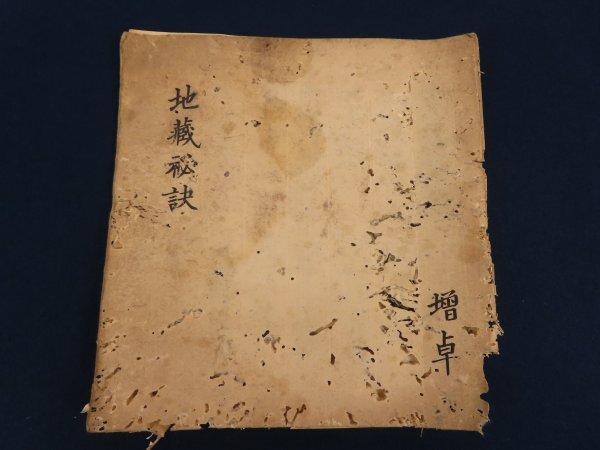 地藏秘訣
增卓